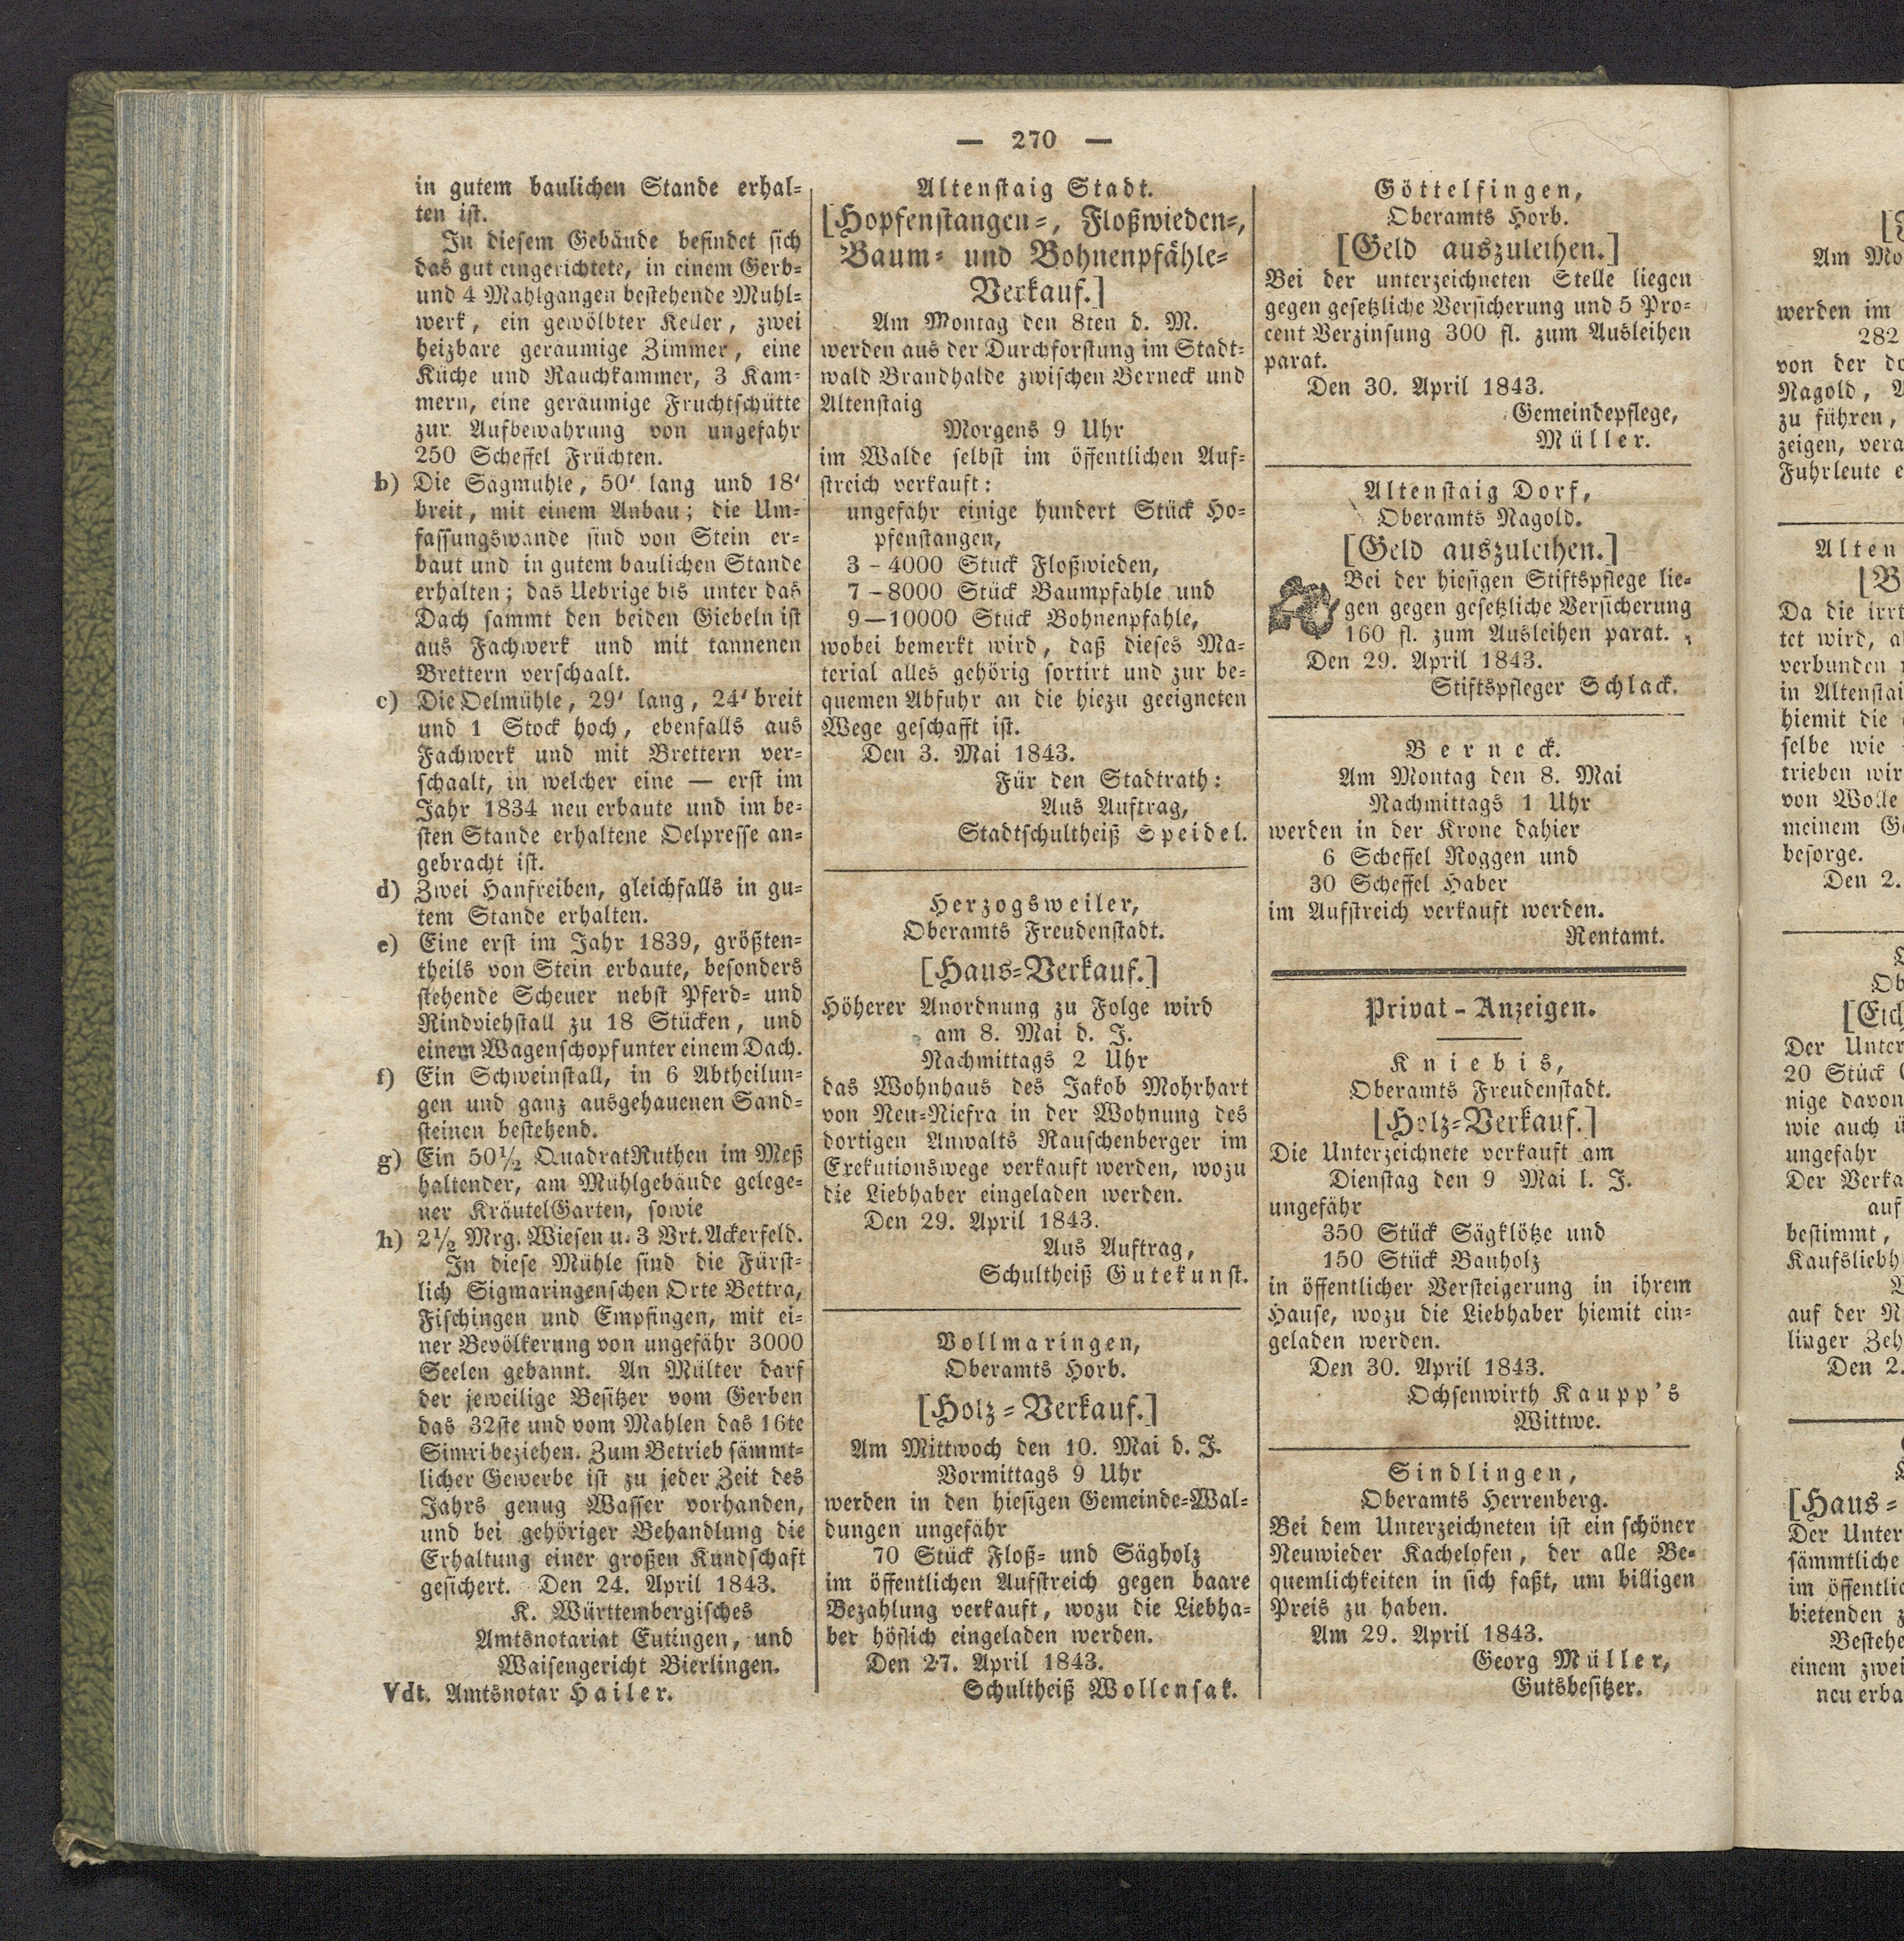 — 270 —
in gutem baulichen Stande erhal-
ten ist.
In diesem Gebäude befindet sich
das gut eingerichtete, in einem Gerb-
und 4 Mahlgängen bestehende Mühl-
werk, ein gewölbter Keller, zwei
heizbare geräumige Zimmer, eine
Küche und Rauchkammer, 3 Kam-
mern, eine geräumige Fruchtschütte
zur Aufbewahrung von ungefähr
250 Scheffel Früchten.
b) Die Sägmühle, 50' lang und 18'
breit, mit einem Anbau; die Um-
fassungswände sind von Stein er-
baut und in gutem baulichen Stande
erhalten; das Uebrige bis unter das
Dach sammt den beiden Giebeln ist
aus Fachwerk und mit tannenen
Brettern verschaalt.
c) Die Oelmühle, 29' lang, 24' breit
und 1 Stock hoch, ebenfalls aus
Fachwerk und mit Brettern ver-
schaalt, in welcher eine — erst im
Jahr 1834 neu erbaute und im be-
sten Stande erhaltene Oelpresse an-
gebracht ist.
d) Zwei Hanfreiben, gleichfalls in gu-
tem Stande erhalten.
e) Eine erst im Jahr 1839, größten-
theils von Stein erbaute, besonders
stehende Scheuer nebst Pferd- und
Rindviehstall zu 18 Stücken, und
einem Wagenschopf unter einem Dach.
f) Ein Schweinstall, in 6 Abtheilun-
gen und ganz ausgehauenen Sand-
steinen bestehend.
g) Ein 50½ QuadratRuthen im Meß
haltender, am Mühlgebäude gelege-
ner KräutelGarten, sowie
h) 2½ Mrg. Wiesen u. 3 Vrt. Ackerfeld.
In diese Mühle sind die Fürst-
lich Sigmaringenschen Orte Bettra,
Fischingen und Empfingen, mit ei-
ner Bevölkerung von ungefähr 3000
Seelen gebannt. An Mülter darf
der jeweilige Besitzer vom Gerben
das 32ste und vom Mahlen das 16te
Simri beziehen. Zum Betrieb sämmt-
licher Gewerbe ist zu jeder Zeit des
Jahrs genug Wasser vorhanden,
und bei gehöriger Behandlung die
Erhaltung einer großen Kundschaft
gesichert. Den 24. April 1843.
K. Württembergisches
Amtsnotariat Eutingen, und
Waisengericht Bierlingen.
Vdt. Amtsnotar Hailer.
Altenstaig Stadt.
[Hopfenstangen-, Floßwieden-,
Baum- und Bohnenpfähle-
Verkauf.]
Am Montag den 8ten d. M.
werden aus der Durchforstung im Stadt-
wald Brandhalde zwischen Berneck und
Altenstaig
Morgens 9 Uhr
im Walde selbst im öffentlichen Auf-
streich verkauft:
ungefähr einige hundert Stück Ho-
pfenstangen,
3 - 4000 Stück Floßwieden,
7 - 8000 Stück Baumpfähle und
9—10000 Stück Bohnenpfähle,
wobei bemerkt wird, daß dieses Ma-
terial alles gehörig sortirt und zur be-
quemen Abfuhr an die hiezu geeigneten
Wege geschafft ist.
Den 3. Mai 1843.
Für den Stadtrath:
Aus Auftrag,
Stadtschultheiß Speidel.
Herzogsweiler,
Oberamts Freudenstadt.
[Haus-Verkauf.]
Höherer Anordnung zu Folge wird
am 8. Mai d. J.
Nachmittags 2 Uhr
das Wohnhaus des Jakob Mohrhart
von Neu-Niefra in der Wohnung des
dortigen Anwalts Rauschenberger im
Exekutionswege verkauft werden, wozu
die Liebhaber eingeladen werden.
Den 29. April 1843.
Aus Auftrag,
Schultheiß Gutekunst.
Vollmaringen,
Oberamts Horb.
[Holz-Verkauf.]
Am Mittwoch den 10. Mai d. J.
Vormittags 9 Uhr
werden in den hiesigen Gemeinde-Wal-
dungen ungefähr
70 Stück Floß- und Sägholz
im öffentlichen Aufstreich gegen baare
Bezahlung verkauft, wozu die Liebha-
ber höflich eingeladen werden.
Den 27. April 1843.
Schultheiß Wollensak.
Göttelfingen,
Oberamts Horb.
[Geld auszuleihen.]
Bei der unterzeichneten Stelle liegen
gegen gesetzliche Versicherung und 5 Pro-
cent Verzinsung 300 fl. zum Ausleihen
parat.
Den 30. April 1843.
Gemeindepflege,
Müller.
Altenstaig Dorf,
Oberamts Nagold.
[Geld auszuleihen.]
Bei der hiesigen Stiftspflege lie-
gen gegen gesetzliche Versicherung
160 fl. zum Ausleihen parat.
Den 29. April 1843.
Stiftspfleger Schlack.
Berneck.
Am Montag den 8. Mai
Nachmittags 1 Uhr
werden in der Krone dahier
6 Scheffel Roggen und
30 Scheffel Haber
im Aufstreich verkauft werden.
Rentamt.
Privat-Anzeigen.
Kniebis,
Oberamts Freudenstadt.
[Holz-Verkauf.]
Die Unterzeichnete verkauft am
Dienstag den 9 Mai l. J.
ungefähr
350 Stück Sägklötze und
150 Stück Bauholz
in öffentlicher Versteigerung in ihrem
Hause, wozu die Liebhaber hiemit ein-
geladen werden.
Den 30. April 1843.
Ochsenwirth Kaupp's
Wittwe.
Sindlingen,
Oberamts Herrenberg.
Bei dem Unterzeichneten ist ein schöner
Neuwieder Kachelofen, der alle Be-
quemlichkeiten in sich faßt, um billigen
Preis zu haben.
Am 29. April 1843.
Georg Müller,
Gutsbesitzer.
Am Mo
werden im
282
von der
Nagold,
zu führen,
zeigen, vera
Fuhrleute e
Alten
Da die irrt
tet wird, a
verbunden
in Altenstai
hiemit die
selbe wie
trieben wir
von Wolle
meinem Ge
besorge.
Den 2.
Ob
[Eich
Der Unter
20 Stück
nige davon
wie auch ü
ungefähr
Der Verka
auf
bestimmt,
Kaufsliebh
auf der N
linger Zeh
Den 2.
[Haus-
Der Unter
sämmtliche
im öffentlic
bietenden z
Bestehe
einem zwei
neu erba